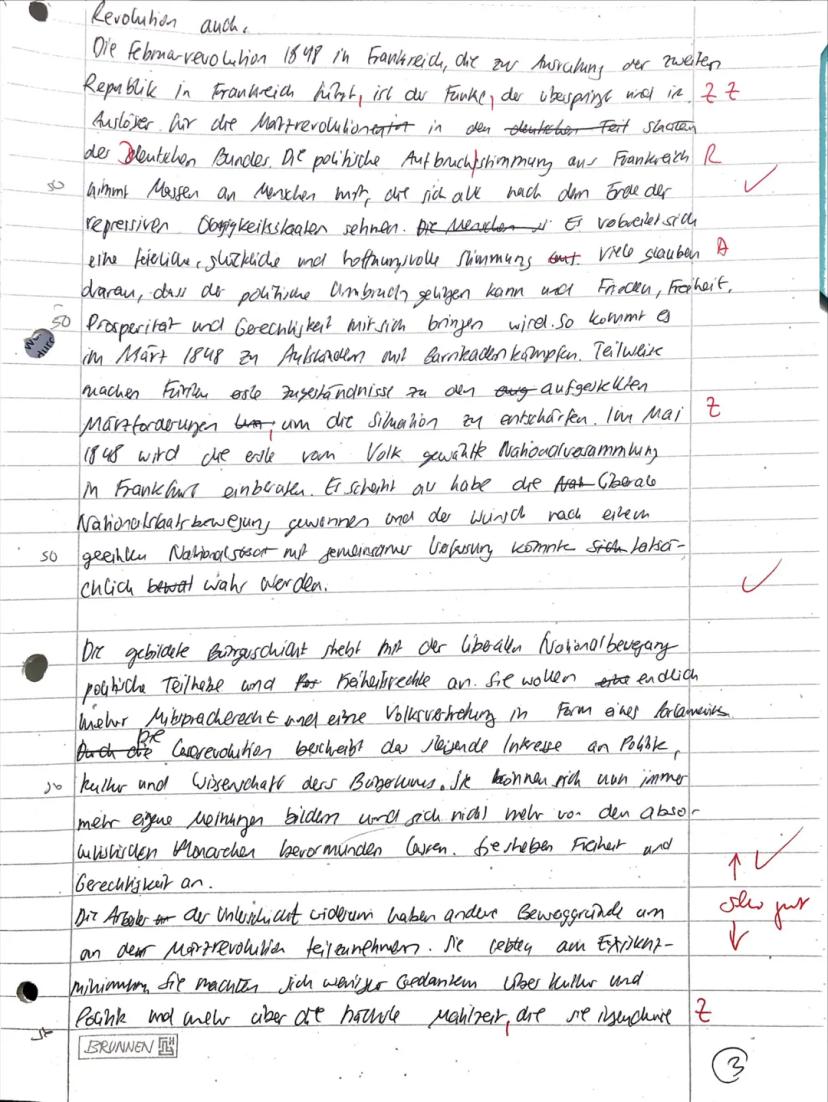 Revolution auch.
Die Februarrevolution 1848 in Frankreich, die zur Ausrufung der zweiten
Republik in Frankreich führt, ist der Funke, der überspringt und ist Z Z
Auslöser für die Märzrevolution in den Staaten
des Deutschen Bundes. Die politische Aufbruchstimmung aus Frankreich R
50 nimmt Massen an Menschen mit, die sich alle nach dem Ende der
repressiven Obrigkeitsstaaten sehnen. Die Menschen Es verbreitet sich
eine feierliche, glückliche und hoffnungsvolle Stimmung auf. Viele glauben A
daran, dass der politische Umbruch gelingen kann und Frieden, Freiheit,
50 Prosperität und Gerechtigkeit mit sich bringen wird. So kommt es
im März 1848 zu Aufständen mit Barrikadenkämpfen. Teilweise
machen Fürsten erste Zugeständnisse zu den aufgestellten
Märzforderungen um, um die Situation zu entschärfen. Im Mai Z
1848 wird die erste vom Volk gewählte Nationalversammlung
in Frankfurt einberufen. Es scheint als habe die Nat Liberale
Nationalstaatsbewegung gewonnen und der Wunsch nach einem
50 geeinten Nationalstaat mit gemeinsamer Verfassung könnte sich tatsä-
chlich wahr werden.
Die gebildete Bürgerschicht strebt mit der liberalen Nationalbewegung
politische Teilhabe und Freiheitsrechte an. Sie wollen endlich
mehr Mitspracherecht und eine Volksvertretung in Form eines Parlaments.
Durch die Die Leserevolution beschreibt das steigende Interesse an Politik,
Kultur und Wissenschaft des Bürgertums. Sie können sich nun immer
mehr eigene Meinungen bilden und sich nicht mehr von den abso-
lutistischen Monarchen bevormunden lassen. Sie streben Freiheit und
Gerechtigkeit an.
sehr gut
Die Arbeiter der Unterschicht widerum haben andere Beweggründe um
an der Märzrevolution teilzunehmen. Sie lebten am Existenz-
minimum. Sie machten sich weniger Gedanken über Kultur und
Politik und mehr über die nächste Mahlzeit, die sie irgendwie Z
BRUNNEN
3